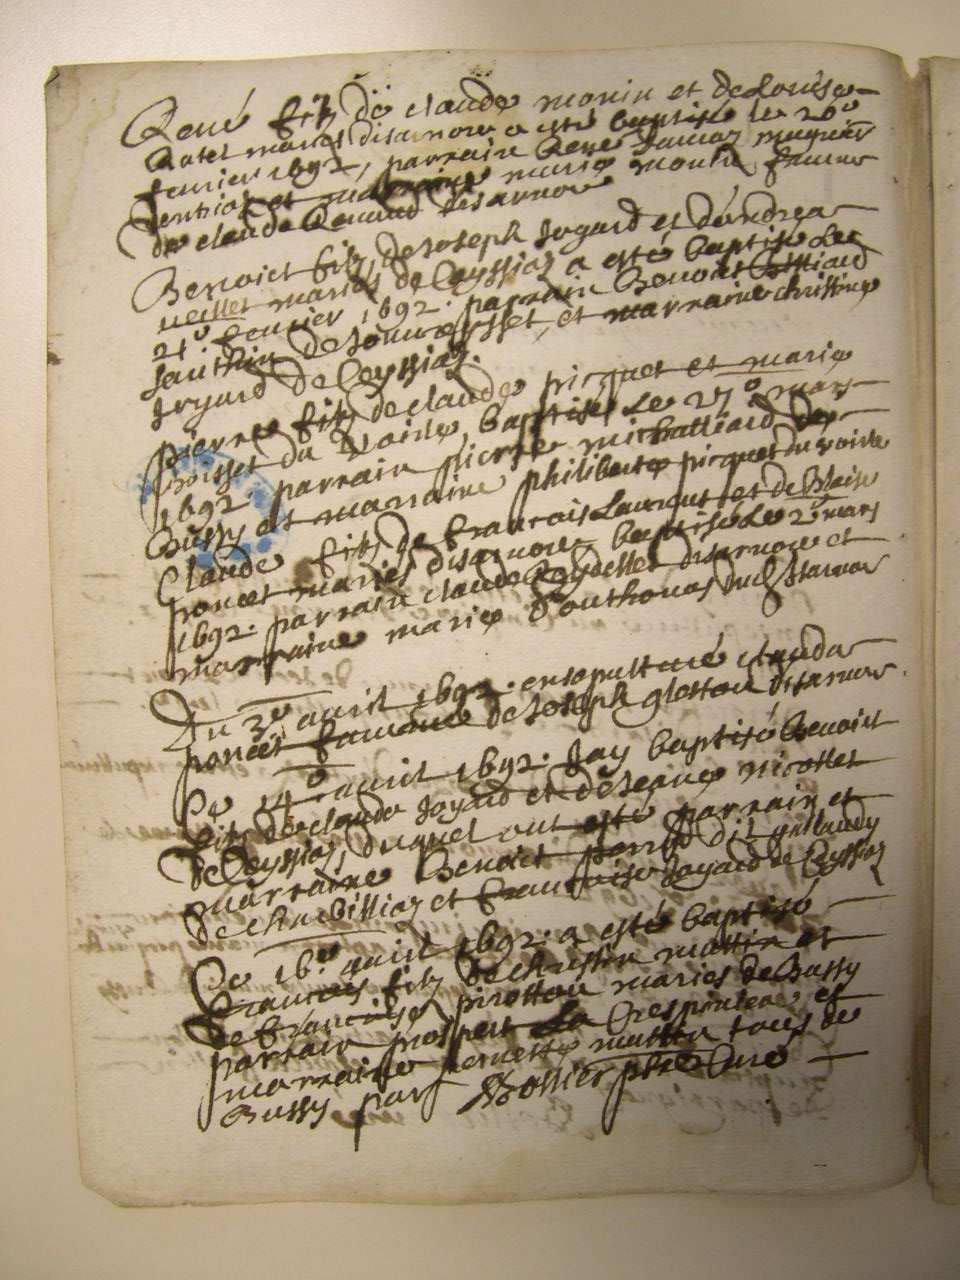 René filz de claude monin et de Louise
Ratel mariés disarnore a esté baptisé le 20e
feurier 1692, parrain René
et marraine marie monin femme
de claude Renaud disarnore
Benoict filz de Joseph Joyard et dandrea
mariés de Ceyssiaz a esté baptisé le
21e feurier 1692. parrain Benoict
de et marraine christine
Joyard de Ceyssiaz.
pierre filz de claude picquet et marie
poisset du voirle, baptisé Le 27e mars
1692. parrain pierre michalliard de
Bussy et marraine philiberte picquet du voirle
Claude filz de francois Laurent et de
poncet mariés disarnore baptisé Le 2e mars
1692. parrain claude Reydellet disarnore et
marraine marie Douthonas
Du 3e auril 1692. ensepulturé clauda
poncet famme de Joseph gletton disarnore.
Ce 14e auril 1692. Jay baptisé Benoict
filz de claude Joyard et de Jeane nicollet
de Ceyssiaz, duquel ont esté parrain et
marraine Benoict dit gallandy
de chucbilliaz et francoise Joyard de Ceyssiaz
Ce 16e auril 1692. a esté baptisé
francois filz de christin mattin et
de francoise pirotton mariés de Bussy
parrain prospert La Crespiniea et
marraine pernette mattin tous de
Bussy par Bollier pbre Curé